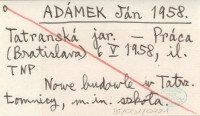 ADÁMEK Ján 1958.
Tatranská jar. — Práca
(Bratislava) 6 V 1958, il.
TNP
Nowe budowle w Tatrz.
Łomnicy, m.in. szkoła.